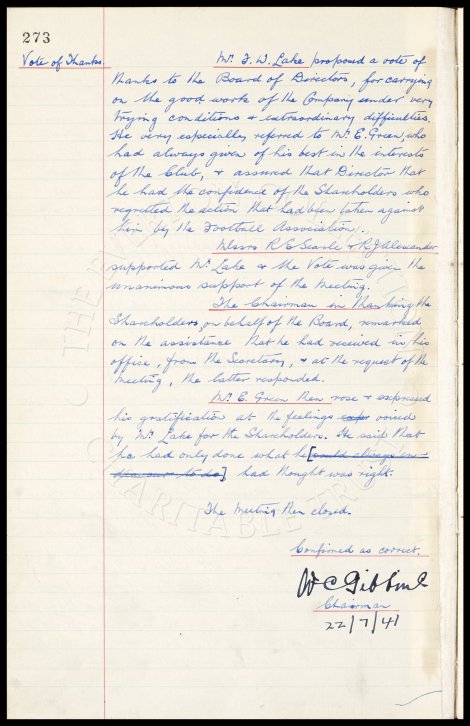 273
Vote of Thanks. Mr. F. W. Lake proposed a vote of
thanks to the Board of Directors, for carrying
on the good work of the Company under very
trying conditions & extraordinary difficulties.
He very especially referred to Mr. E. Green, who
had always given of his best in the interests
of the Club, & assured that Director that
he had the confidence of the Shareholders who
regretted the action that had been taken against
him by the Football Association.
Messrs R E Searle & R J Alexander
supported Mr. Lake & the Vote was given the
unanimous support of the meeting.
The Chairman in thanking the
Shareholders, on behalf of the Board, remarked
on the assistance that he had received in his
office, from the Secretary, & at the request of the
meeting, the latter responded.
Mr. E. Green then rose & expressed
his gratification at the feelings voiced
by Mr. Lake for the Shareholders. He said that
he had only done what he [would always en-
deavour to do] had thought was right.
The meeting then closed.
Confirmed as correct.
Chairman
22/7/41